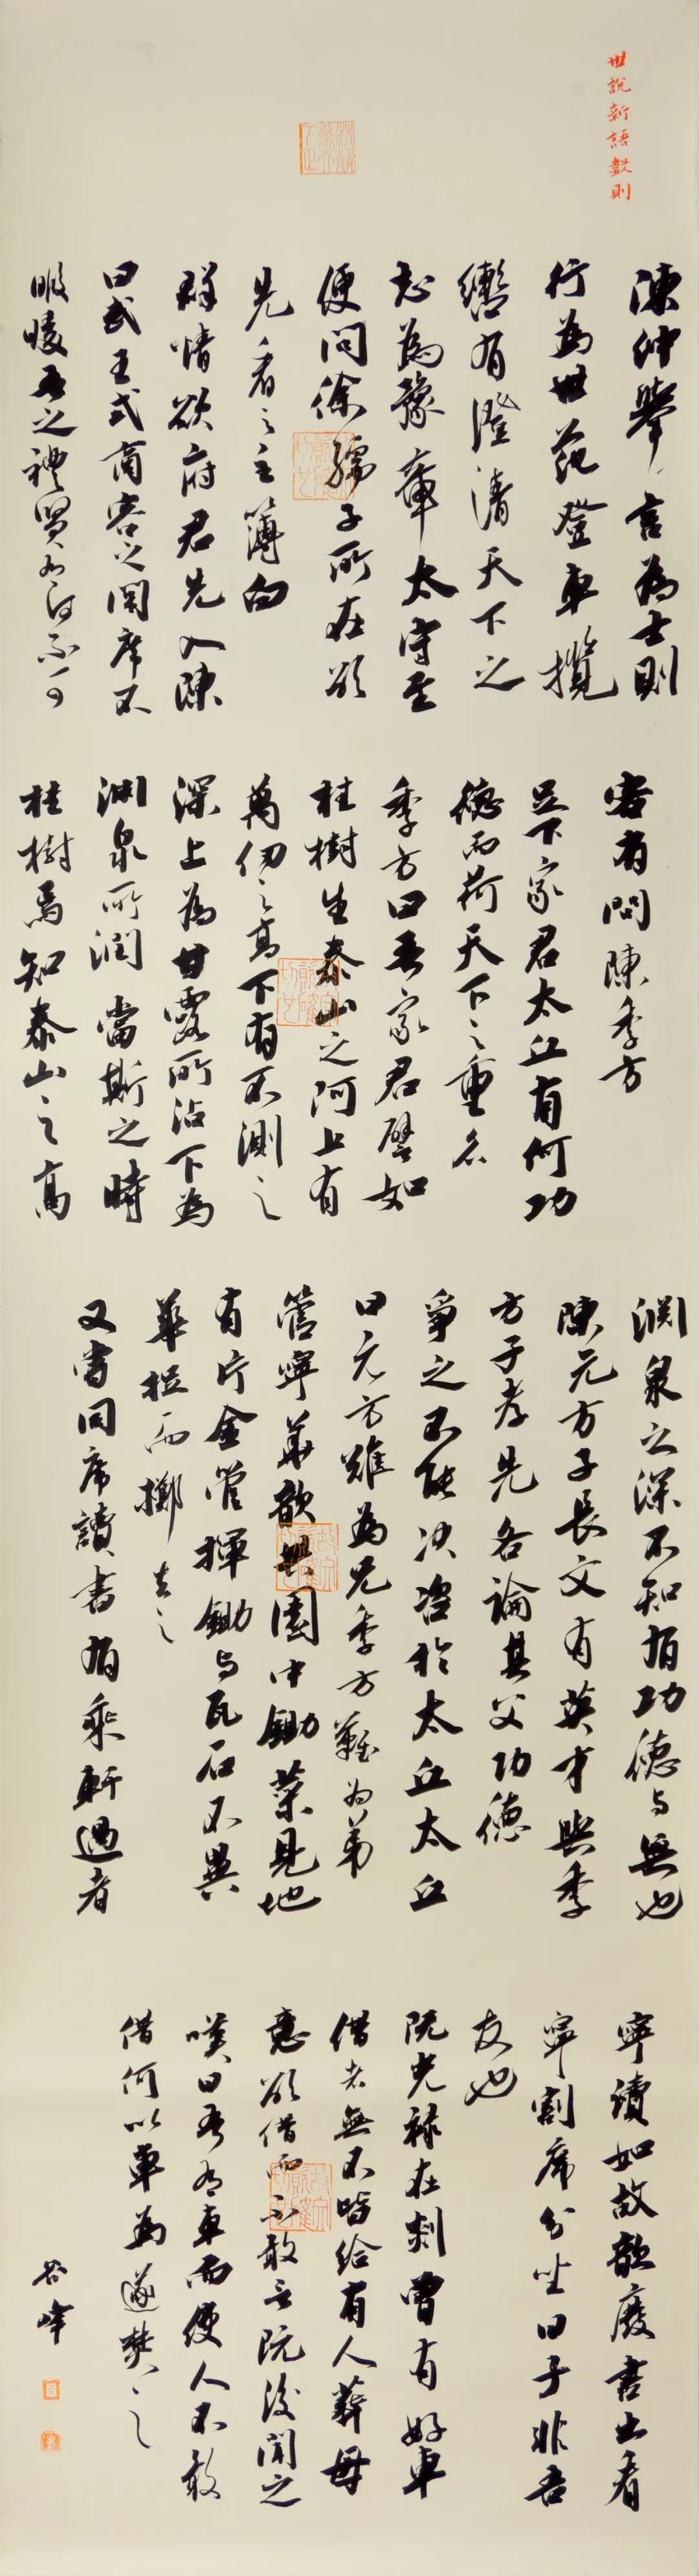 世說新語數則
陳仲舉言為士則
行為世范登車攬
轡有澄清天下之
志為豫章太守至
便問徐孺子所在欲
先看之主簿白
群情欲府君先入陳
曰武王式商容之閭席不
暇煖吾之禮賢有何不可
客有問陳季方
足下家君太丘有何功
德而荷天下之重名
季方曰吾家君譬如
桂樹生泰山之阿上有
萬仞之高下有不測之
深上為甘露所沾下為
淵泉所潤當斯之時
桂樹焉知泰山之高
淵泉之深不知有功德与無也
陳元方子長文有英才與季
方子孝先各論其父功德
爭之不能決咨於太丘太丘
曰元方難為兄季方難為弟
管寧華歆共園中鋤菜見地
有片金管揮鋤与瓦石不異
華捉而擲去之
又嘗同席讀書有乘軒過者
寧讀如故歆廢書出看
寧割席分坐曰子非吾
友也
阮光祿在剡曾有好車
借者無不皆給有人葬母
意欲借而不敢言阮後聞之
嘆曰吾有車而使人不敢
借何以車為遂焚之
谷峰